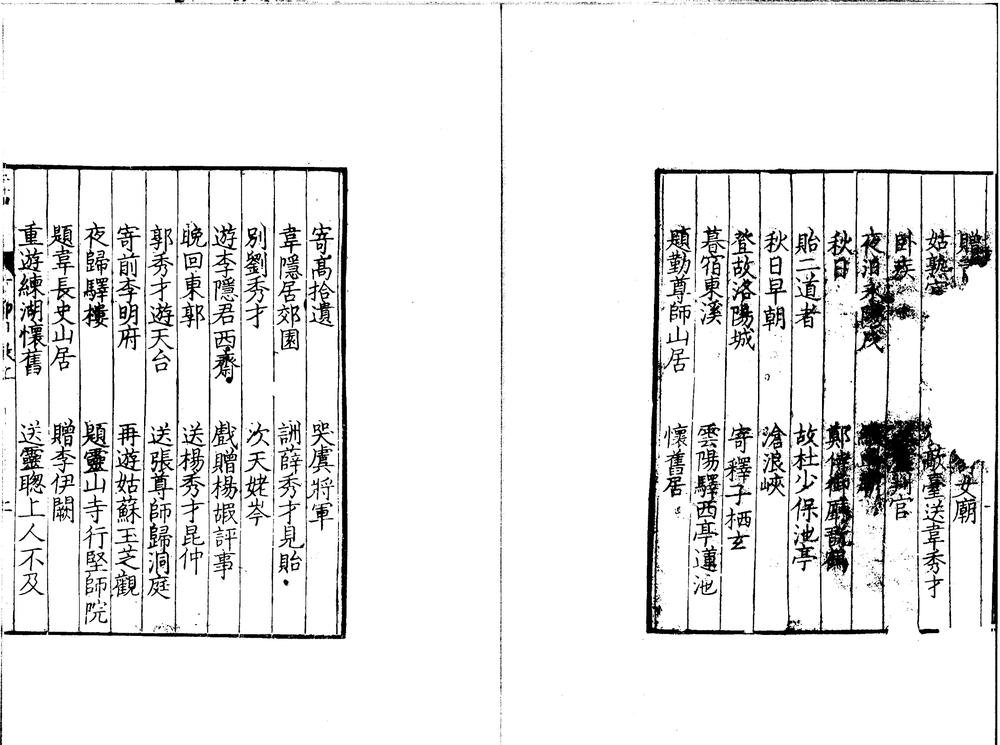 贈 女廟
姑熟官 敵臺送韋秀才
卧疾 判官
夜泊永陽戍
秋日 鄭侍御廳翫鶴
貽二道者 故杜少保池亭
秋日早朝 滄浪峽
登故洛陽城 寄釋子栖玄
暮宿東溪 雲陽驛西亭蓮池
題勤尊師山居 懷舊居
寄髙拾遺 哭虞將軍
韋隱居郊園 詶薛秀才見貽
別劉秀才 次天姥岑
遊李隱君西齋 戲贈楊嘏評事
晚回東郭 送楊秀才昆仲
郭秀才遊天台 送張尊師歸洞庭
寄前李明府 再遊姑蘇玉芝觀
夜歸驛樓 題靈山寺行堅師院
題韋長史山居 贈李伊闕
重遊練湖懷舊 送靈聰上人不及